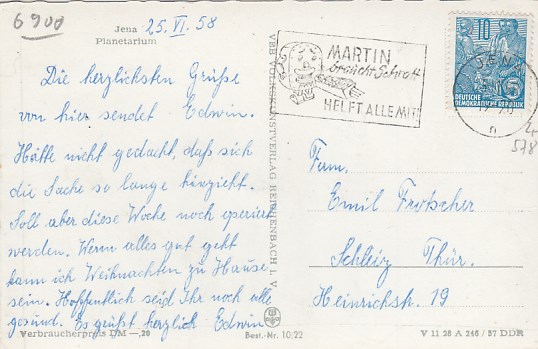 6900
Jena 25. VI. 58
Planetarium
Die herzlichsten Grüße
von hier sendet Edwin.
Hätte nicht gedacht, daß sich
die Sache so lange hinzieht.
Soll aber diese Woche noch operiert
werden. Wenn alles gut geht
kann ich Weihnachten zu Hause
sein. Hoffentlich seid Ihr noch alle
gesund. Es grüßt herzlich Edwin
Verbraucherpreis DM —,20
VEB VOLKSKUNSTVERLAG REICHENBACH i. V.
Best.-Nr. 10/22
MARTIN
braucht Schrott
HELFT ALLE MIT
10
DEUTSCHE
DEMOKRATISCHE REPUBLIK
5
JENA
n
578
Fam.
Emil Frotscher
Schleiz Thür.
Heinrichstr. 19
V 11 28 A 246 / 57 DDR